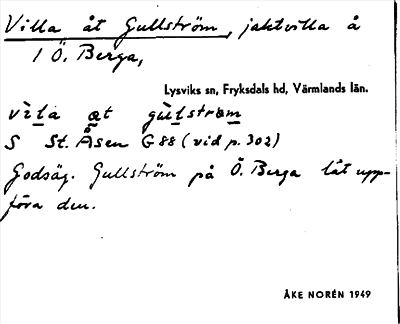 Villa åt Gullström, jaktvilla å
1 Ö. Berga,
Lysviks sn, Fryksdals hd, Värmlands län.
vìla at gùlstrøm
S St. Åsen G 88 (vid p. 302)
Godsäg. Gullström på Ö. Berga låt upp-
föra den.
ÅKE NORÉN 1949